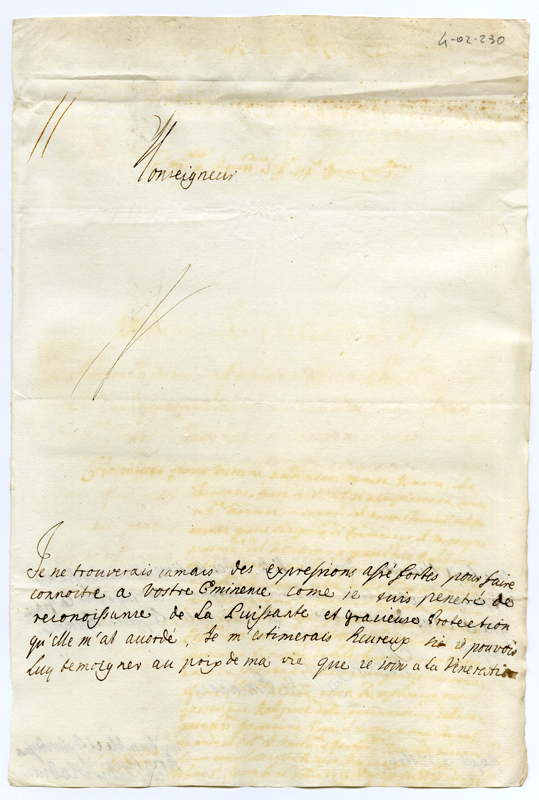 4-02-230
Monseigneur
Je ne trouverais iamais des expressions assé fortes pour faire
connoitre a Vostre Eminence come je suis penetré de
reconoissance de La Puissante et gracieuse Protection
qu'elle m'at acordé, Je m'estimerais heureux si je pouvois
Luy temoigner au prix de ma vie que ce soin a la Veneration